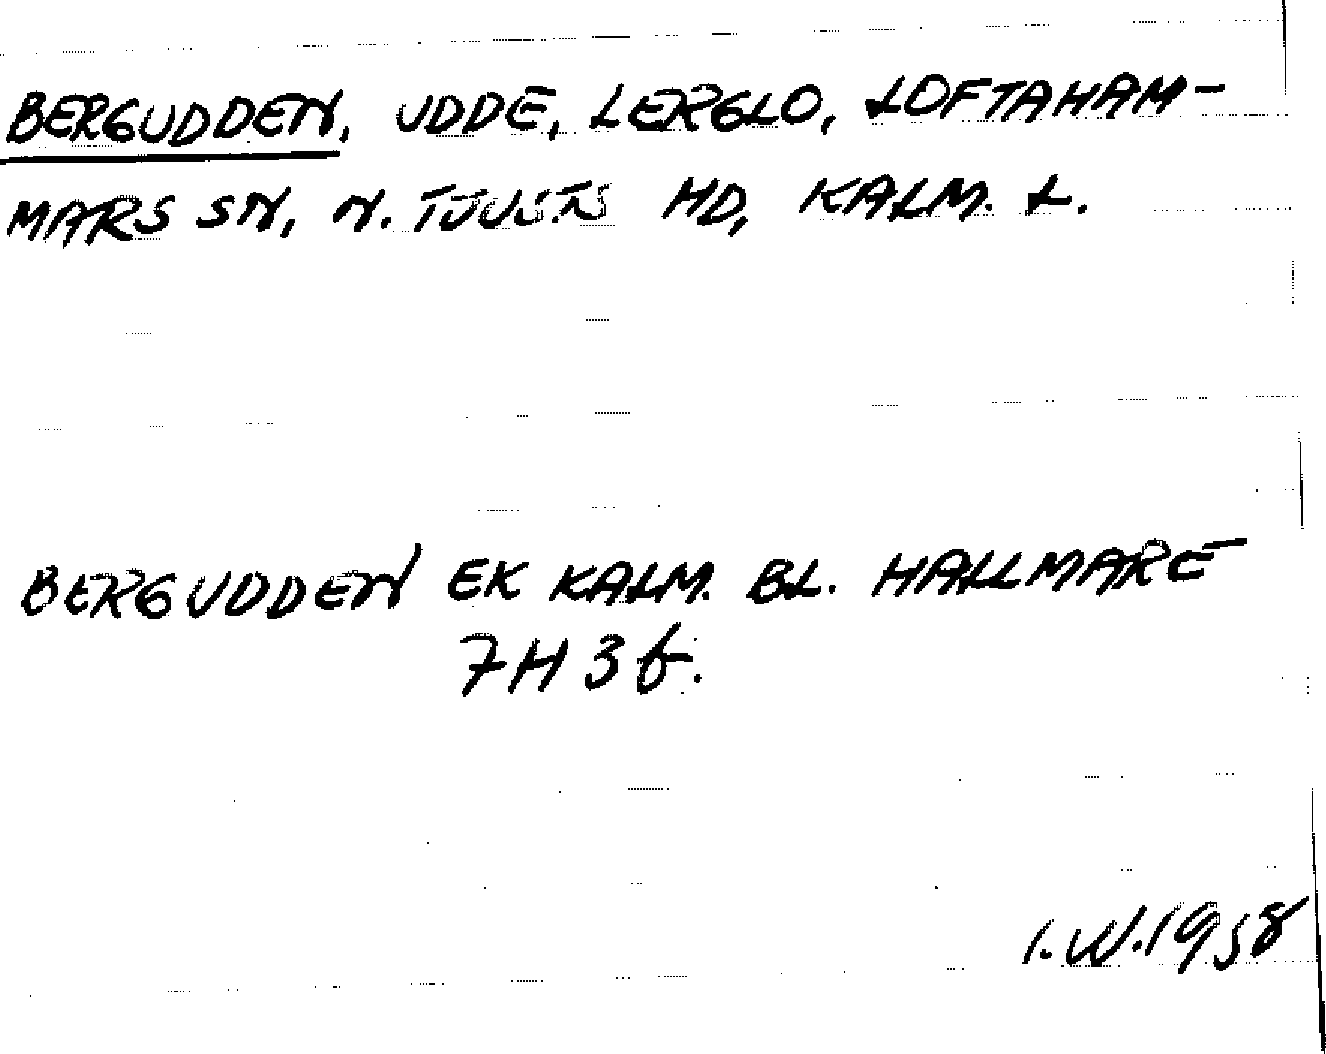 BERGUDDEN, UDDE, LERGLO, LOFTAHAM-
MARS SN, N. TJUSTS HD, KALM. L.
BERGUDDEN EK KALM. BL. HALLMARE
7H 3f.
I.W.1958